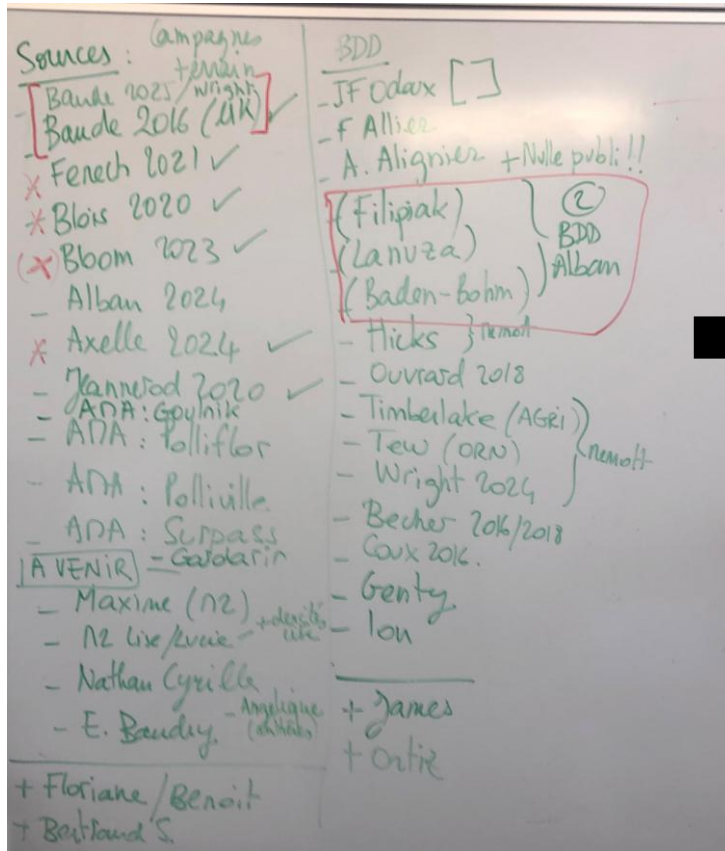 Sources : Campagnes
terrain
- Baude 2025/Wright
- Baude 2016 (UK) ✓
* Fenech 2021 ✓
* Blois 2020 ✓
(*) Bloom 2023 ✓
- Alban 2024
* Axelle 2024 ✓
- Jeannerod 2020 ✓
- ANA : Goulnik
- ANA : Polliflor
- ANA : Polliville
- ANA : Surpass
A VENIR - Gardarin
- Maxime (M2)
- M2 Lise/Lucie + densités
- Nathan Cyrille
- E. Baudry - Angélique
+ Floriane/Benoit
+ Bertrand S.
BDD
- JF Odoux [ ]
- F Allier
- A. Alignier + Nulle publi !!
- (Filipiak) 2
- (Lanuza) BDD
- (Baden-Bohm) Alban
- Hicks } nemoH
- Ouvrard 2018
- Timberlake (AGRI)
- Tew (ORN) nemoH
- Wright 2024
- Becher 2016/2018
- Coux 2016.
- Genty
- Ion
+ James
+ Ortiz